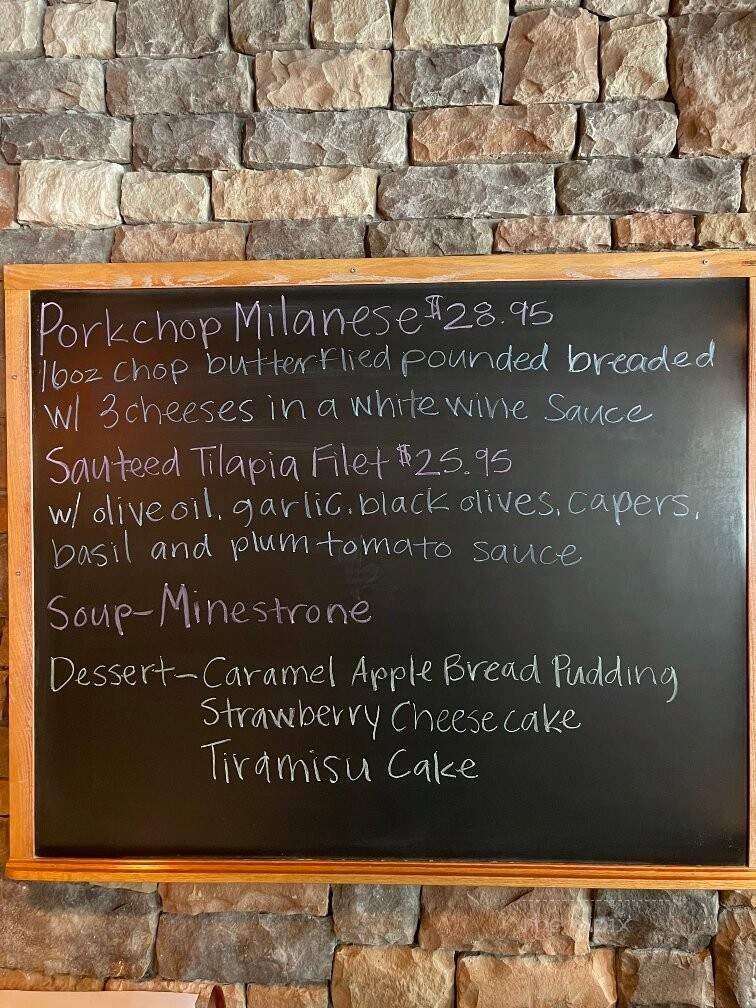 Porkchop Milanese $28.95
16oz chop butterflied pounded breaded
w/ 3 cheeses in a white wine Sauce
Sauteed Tilapia Filet $25.95
w/ olive oil, garlic, black olives, capers,
basil and plum tomato sauce
Soup-Minestrone
Dessert-Caramel Apple Bread Pudding
Strawberry Cheesecake
Tiramisu Cake